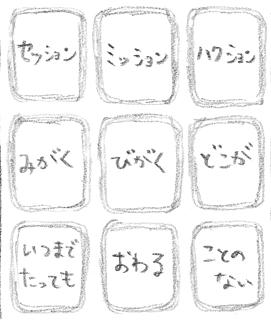 セッション
ミッション
ハクション
みがく
びがく
どこが
いつまで
たっても
おわる
ことの
ない